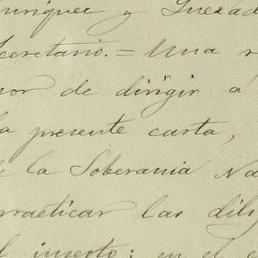 y Quesad
Secretario. = Una r
nor de dirigir á
la presente carta,
de la Soberania Na
practicar las dili
el inserto: en el c